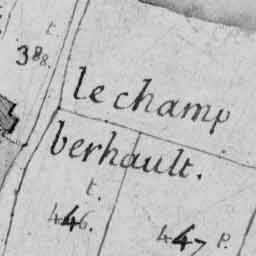 t.
388.
le champ
berhault.
t.
446.
447 P.